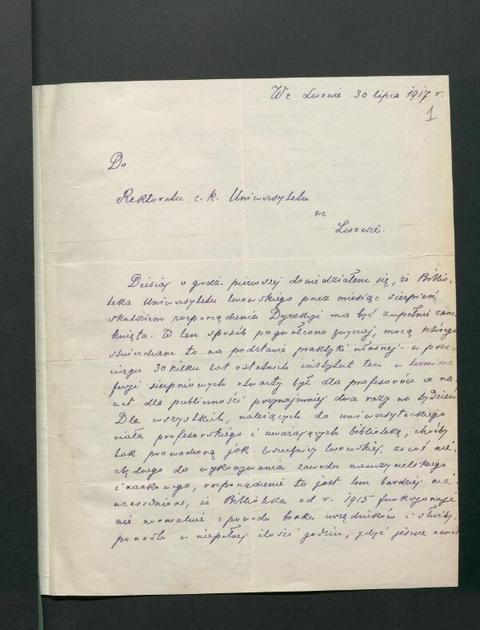 We Lwowie 30 lipca 1917 r.
1
Do
Rektoratu c. k. Uniwersytetu
we
Lwowie.
Dzisiaj o godz. pierwszej dowiedziałem się, że Biblio-
teka Uniwersytetu lwowskiego przez miesiąc sierpień
skutkiem rozporządzenia Dyrekcyi ma być zupełnie zam-
knięta. W ten sposób pogwałcono zwyczaj, mocą którego
stwierdzam to na podstawie praktyki własnej - w prze-
ciągu 30 kilku lat ostatnich instytut ten w terminie
feryj sierpniowych otwarty był dla profesorów a na-
wet dla publiczności przynajmniej dwa razy na tydzień.
Dla wszystkich, należących do uniwersyteckiego
ciała profesorskiego i uważających bibliotekę, choćby
tak prowadzoną jak wszechnicy lwowskiej, za coś nie-
zbędnego do wykonywania zawodu nauczycielskiego
i naukowego, rozporządzenie to jest tem bardziej nie-
uzasadnione, że Biblioteka od r. 1915 funkcyonuje
nie normalnie z powodu braku urzędników i służby,
ponadto w niepełnej ilości godzin, gdyż jeszcze nawet